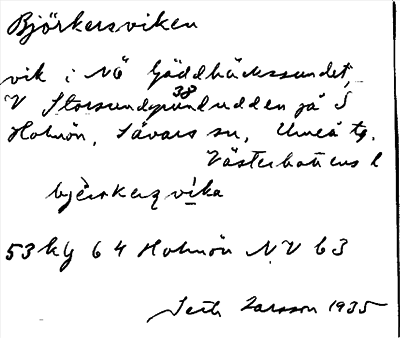 Björkersviken
vik i NÖ Gäddbäckssundet,
V Storsundgrundudden på S
38
Holmön, Sävars sn, Umeå tg.
Västerbottens l
bjèrskerz vìka
53 kg 64 Holmön N.V b3
Seth Larsson 1935